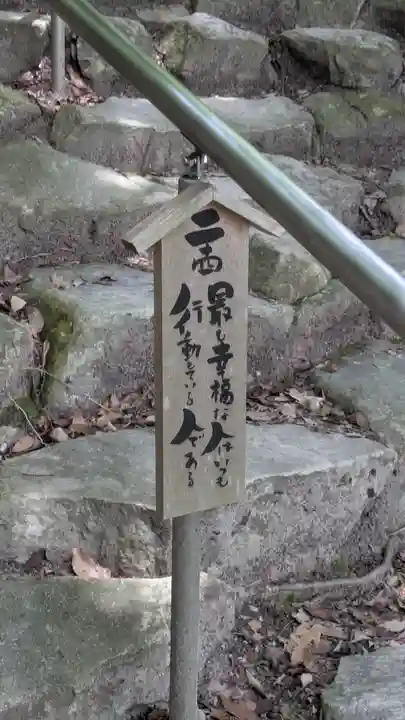 二西
最も幸福な人はいつも
行動している人である